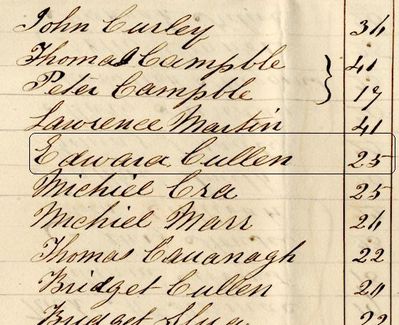 John Curley 36
Thomas Campble 41
Peter Campble 17
Lawrence Martin 41
Edward Cullen 25
Michiel Cra 25
Michiel Marr 26
Thomas Cavanagh 22
Bridget Cullen 20
Bridget 22